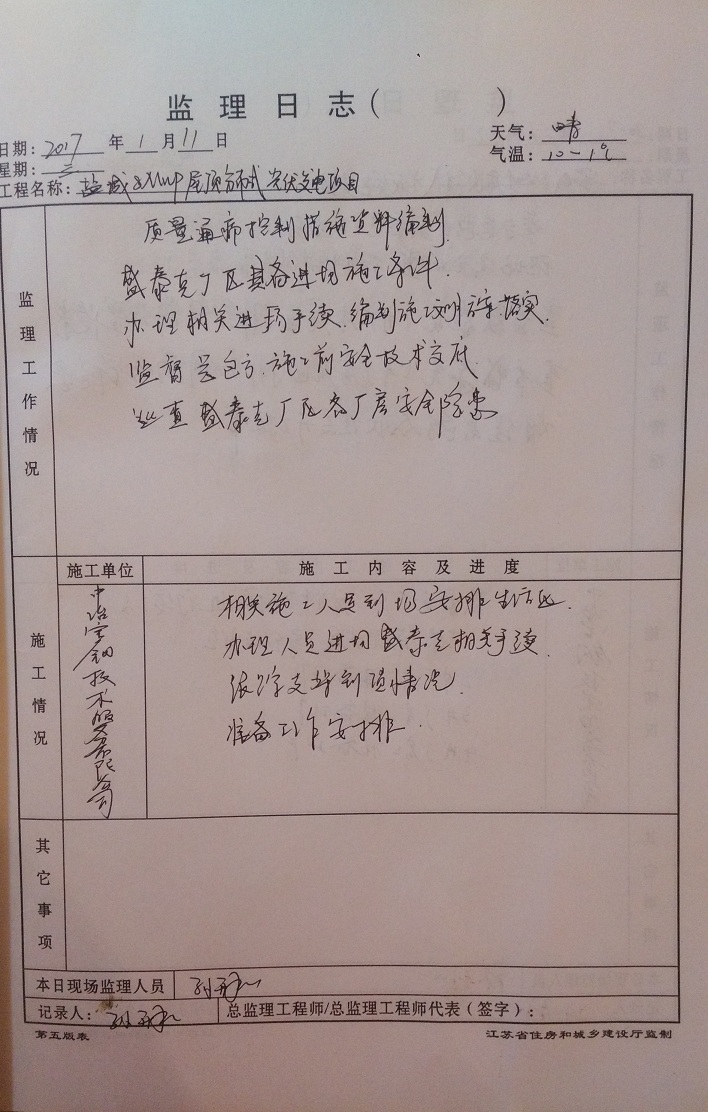 监理日志( )
日期: 2017 年 1 月 11 日 天气: 晴
星期: 三 气温: 10~1℃
工程名称: 盐城 8MWP屋顶分布式光伏发电项目
监理工作情况
质量通病控制措施资料编制.
盛泰克厂区具备进场施工条件
办理相关进场手续.编制施工 方案.落实.
监督总包方.施工前安全技术交底.
巡查盛泰克厂区各厂房安全隐患
施工情况
施工单位 施工内容及进度
中冶宝钢技术服务有限公司
相关施工人员到场安排生活区.
办理人员进场盛泰克相关手续.
跟踪支架到货情况.
准备工作安排.
其它事项
本日现场监理人员
记录人: 总监理工程师/总监理工程师代表(签字):
第五版表 江苏省住房和城乡建设厅监制